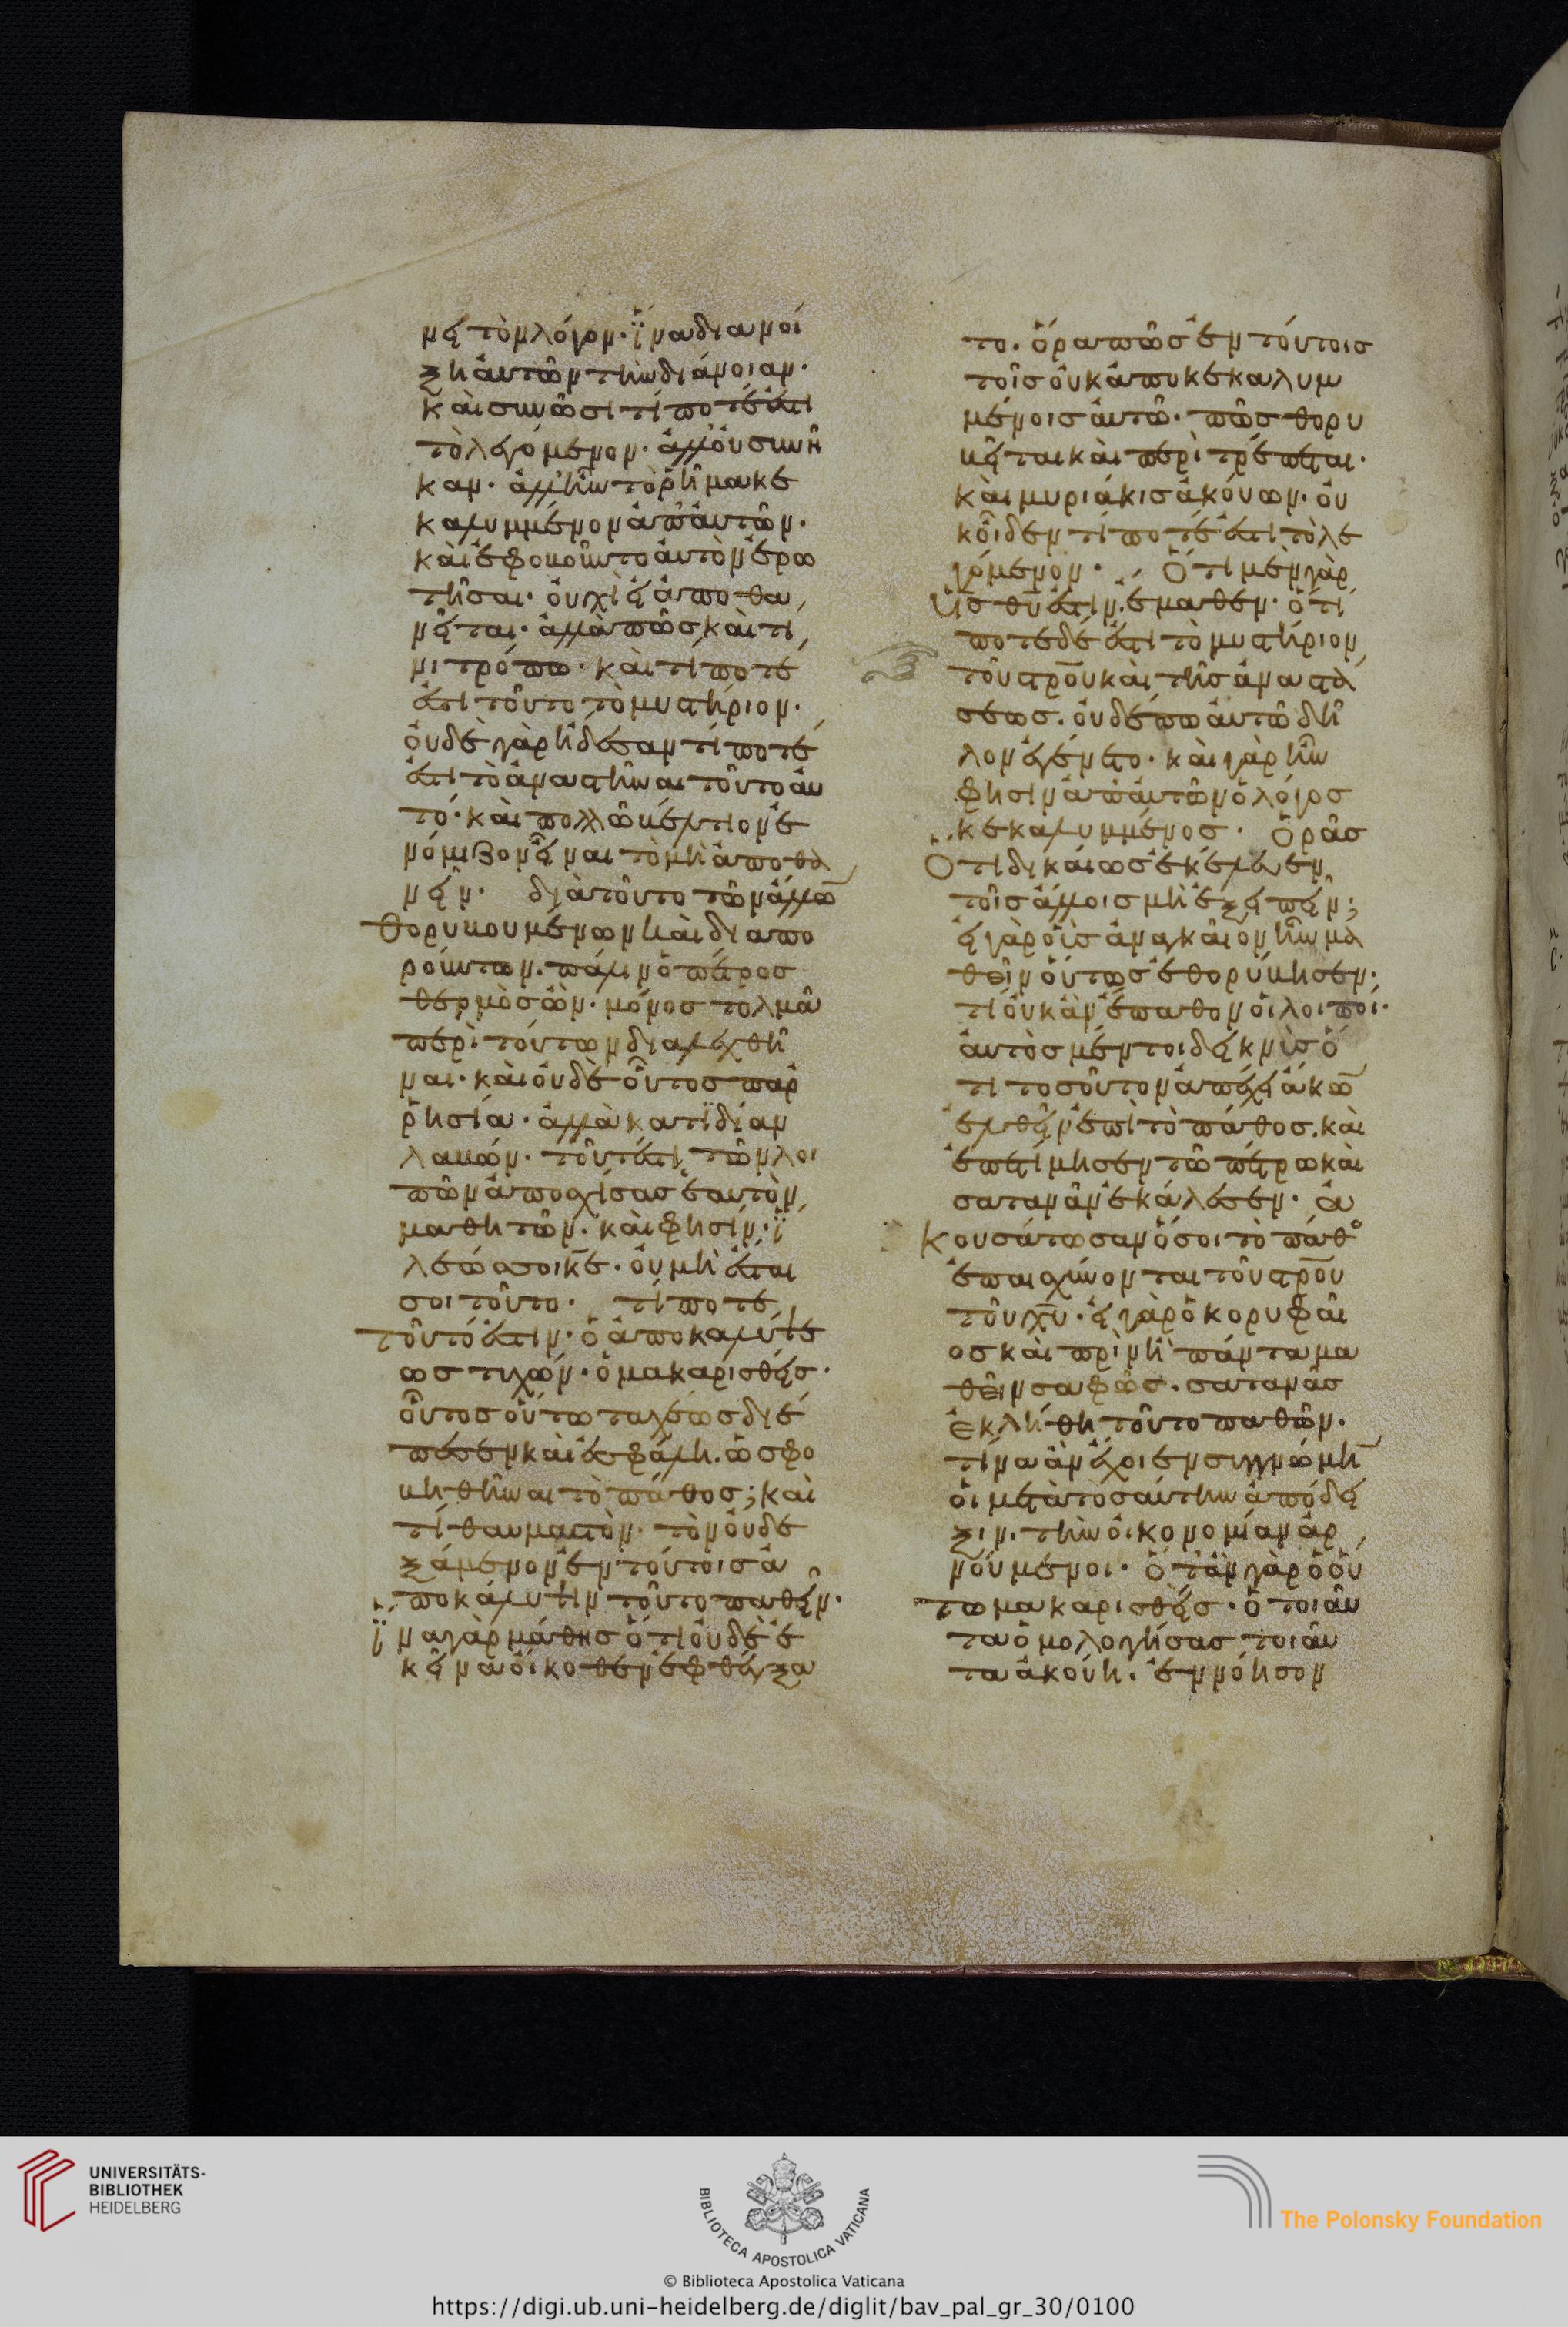 μει τὸν λόγον· ἵνα διανοί
ξη αὐτῶν τὴν διάνοιαν·
καὶ συνῶσι τί ποτέ ἐστι
τὸ λεγόμενον· ἀλλ' οὐ συνῆ
καν· ἀλλ' ἦν τὸ ῥῆμα κε
καλυμμένον ἀπ' αὐτῶν·
καὶ ἐφοβοῦντο αὐτὸν ἐρω
τῆσαι· οὐχὶ εἰ ἀποθα
νεῖται· ἀλλὰ πῶς καὶ τί
νι τρόπω· καὶ τί ποτέ
ἐστι τοῦτο τὸ μυστήριον·
οὐδὲ γὰρ ἤδεσαν τί ποτέ
ἐστι τὸ ἀναστῆναι τοῦτο αὐ
τό· καὶ πολλῶ βέλτιον ἐ
νόμιζον εἶναι τὸ μὴ ἀποθα
νεῖν· διὰ τοῦτο τῶν ἄλλω
θορυβουμένων καὶ διαπο
ρούντων· πάλιν ὁ πέτρος
θερμὸς ὢν· μόνος τολμᾶ
περὶ τούτων διαλεχθῆ
ναι· καὶ οὐδὲ οὗτος παρ
ρησία· ἀλλὰ κατϊδίαν
λαβών· τουτέστι τῶν λοι
πῶν ἀποσχίσας ἑαυτὸν
μαθητῶν· καὶ φησίν· ἵ
λεώς σοι κε· οὐ μὴ ἔσται
σοι τοῦτο· τί ποτε
τοῦτό ἐστιν· ὁ ἀποκαλύψε
ως τυχών· ὁ μακαρισθείς·
οὗτος οὕτω ταχέως διέ
πεσεν καὶ ἐσφάλη· ὡς φο
βηθῆναι τὸ πάθος; καὶ
τί θαυμαστὸν· τὸν οὐδε
ξάμενον ἐν τούτοις ἀ
ποκάλυψιν τοῦτο παθεῖν·
ἵνα γὰρ μάθης ὅτι οὐδὲ ἐ
κεῖνα οἴκοθεν ἐφθέγξα
το· ὅρα πῶς ἐν τούτοις
τοῖς οὐκ ἀποκεκαλυμ
μένοις αὐτῶ· πῶς θορυ
βεῖται καὶ περιτρέπεται·
καὶ μυριάκις ἀκούων· οὐ
κ οἶδεν τί ποτέ ἐστι τὸ λε
γόμενον· Ὅτι μὲν γὰρ
υἱς θυ ἐστιν· ἔμαθεν· ὅτι
ποτε δέ ἐστι τὸ μυστήριον
τοῦ στρου καὶ τῆς ἀναστά
σεως· οὐδέπω αὐτῶ δῆ
λον ἐγένετο· καὶ γὰρ ἦν
φησιν ἀπ' αὐτῶν ὁ λόγος
κεκαλυμμένος· Ὁρᾶς
ὅτι δικαίως ἐκέλευεν
τοῖς ἄλλοις μὴ ἐξειπεῖν;
εἰ γὰρ οἷς ἀναγκαῖον ἦν μα
θεῖν οὕτως ἐθορύβησεν·
τί οὐκ ἂν ἔπαθον οἱ λοιποί·
αὐτὸς μέντοι δεικνὺς ὅ
τι τοσοῦτον ἀπέχει ἄκω
ἐλθεῖν ἐπὶ τὸ πάθος· καὶ
ἐπετίμησεν τῶ πέτρω καὶ
σατανᾶν ἐκάλεσεν· ἀ
κουσάτωσαν ὅσοι τὸ πάθο
ἐπαισχύνονται τοῦ στρου
τοῦ χυ· εἰ γὰρ ὁ κορυφαῖ
ος καὶ πρὶν ἢ πάντα μα
θεῖν σαφῶς· σατανᾶς
ἐκλήθη τοῦτο παθών·
τίνα ἂν ἔχοιεν συγγνώμη
οἱ μετὰ τοσαύτην ἀπόδει
ξιν· τὴν οἰκονομίαν ἀρ
νούμενοι· ὅταν γὰρ ὁ οὕ
τω μακαρισθείς· ὁ τοιαῦ
τα ὁμολογήσας τοιαῦ
τα ἀκούη· ἐννόησον
UNIVERSITÄTS-
BIBLIOTHEK
HEIDELBERG
BIBLIOTECA APOSTOLICA VATICANA
The Polonsky Foundation
© Biblioteca Apostolica Vaticana
https://digi.ub.uni-heidelberg.de/diglit/bav_pal_gr_30/0100